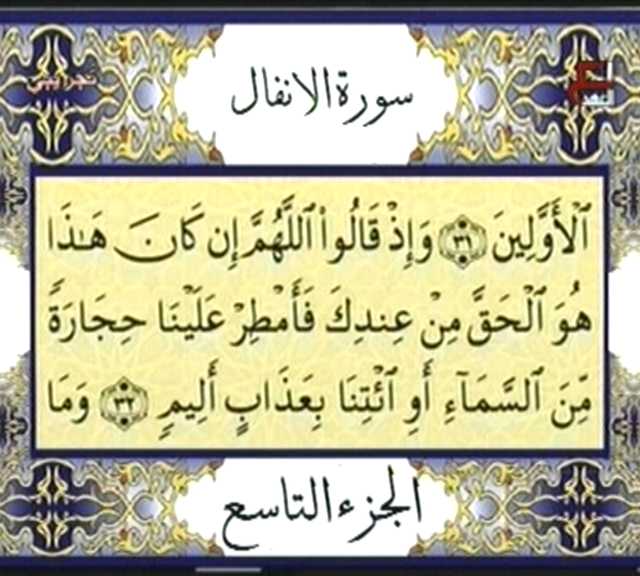 سورة الانفال
تجريبي
ٱلْأَوَّلِينَ ٣١ وَإِذْ قَالُوا۟ ٱللَّهُمَّ إِن كَانَ هَـٰذَا
هُوَ ٱلْحَقَّ مِنْ عِندِكَ فَأَمْطِرْ عَلَيْنَا حِجَارَةً
مِّنَ ٱلسَّمَآءِ أَوِ ٱئْتِنَا بِعَذَابٍ أَلِيمٍ ٣٢ وَمَا
الجزء التاسع